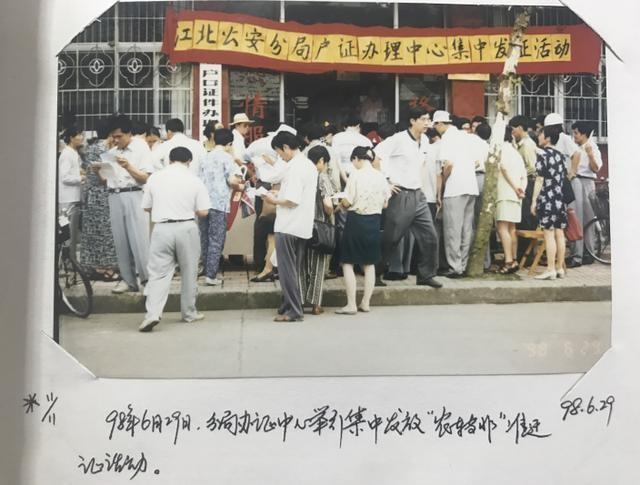 江北公安分局户证办理中心集中发证活动
户口证件办
情
98 6 29
98.6.29
98年6月29日，分局办证中心举行集中发放“农转非”准迁
证活动。